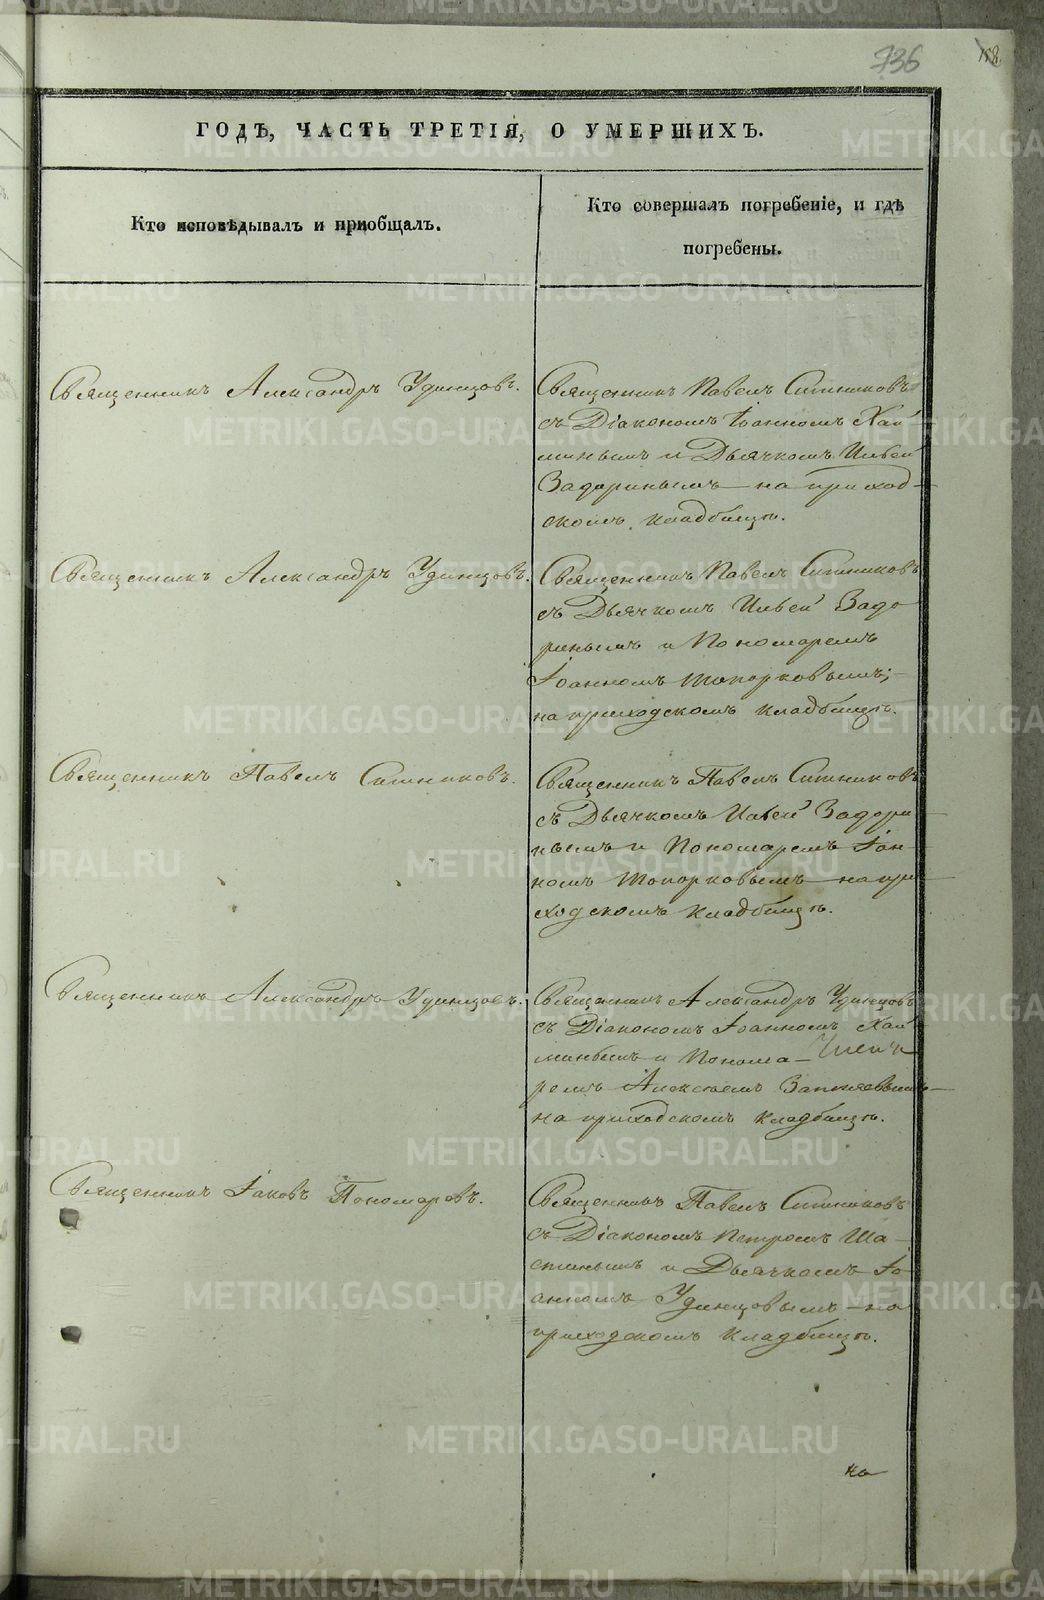 736
ГОДѢ, ЧАСТЬ ТРЕТІЯ, О УМЕРШИХЪ.
Кто исповѣдывалъ и пріобщалъ.
Кто совершалъ погребеніе, и гдѣ
погребены.
Священникъ Александръ Удинцовъ.
Священникъ Павелъ Ситниковъ
съ Діакономъ Іоанномъ Хай
минымъ и Дьячкомъ Ильей
Задоринымъ на приход-
скомъ кладбищѣ.
Священникъ Александръ Удинцовъ.
Священникъ Павелъ Ситниковъ
съ Дьячкомъ Ильей Задо
ринымъ и Пономаремъ
Іоанномъ Топорковымъ;
на приходскомъ кладбищѣ.
Священникъ Павелъ Ситниковъ.
Священникъ Павелъ Ситниковъ
съ Дьячкомъ Ильей Задори
нымъ и Пономаремъ Іоан-
номъ Топорковымъ на при
ходскомъ кладбищѣ.
Священникъ Александръ Удинцовъ.
Священникъ Александръ Удинцовъ
съ Діакономъ Іоанномъ Хай
минымъ и Понома-
ремъ Алексѣемъ
на приходскомъ кладбищѣ.
Священникъ Іаковъ Пономаревъ.
Священникъ Павелъ Ситниковъ
съ Діакономъ Петромъ Ша-
стинымъ и Дьячкомъ Іо
анномъ Удинцовымъ на
приходскомъ кладбищѣ.
на
METRIKI.GASO-URAL.RU